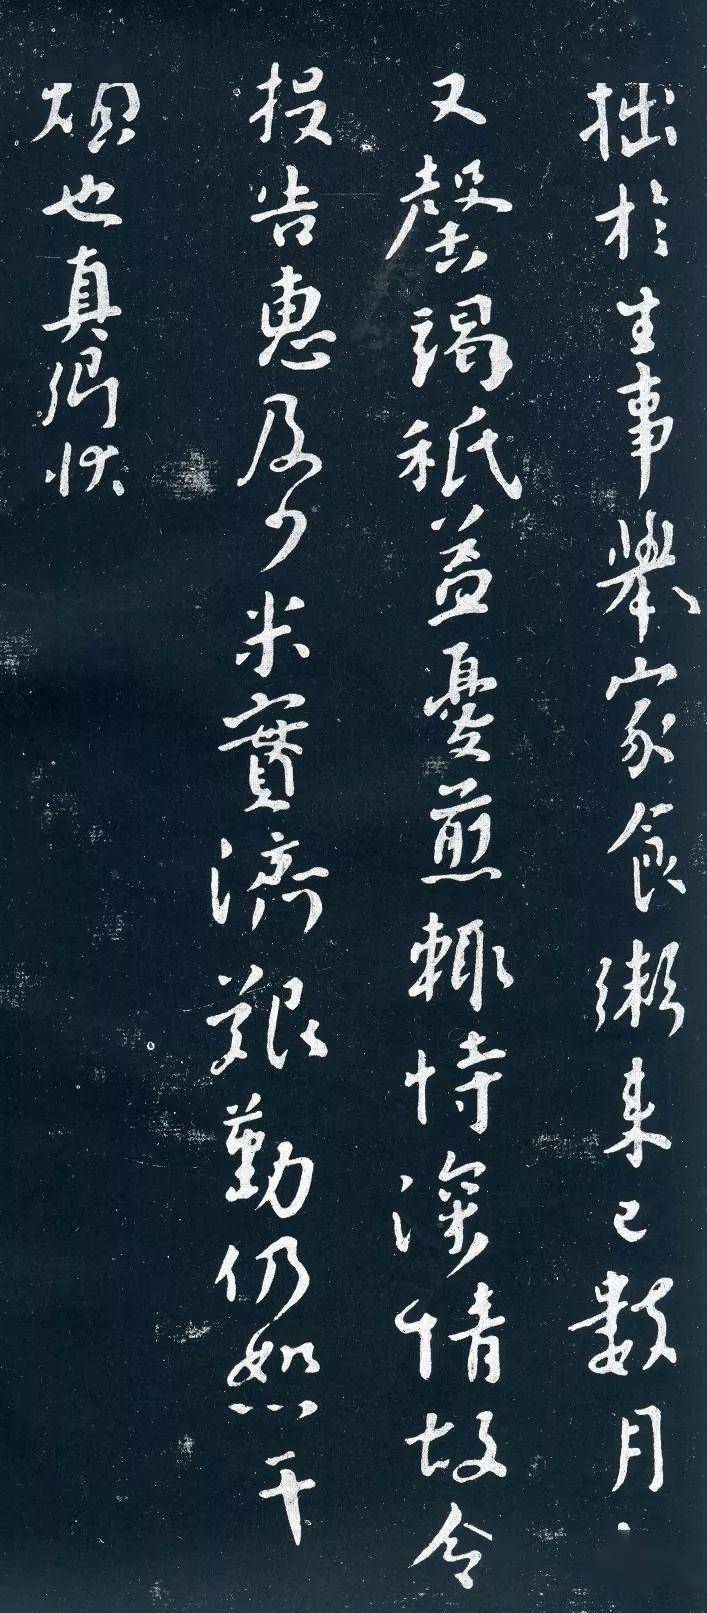 拙於生事舉家食粥来已數月
又罄竭秖益憂煎輙恃深情故令
投告惠及少米實濟艱勤仍恕干
煩也真卿狀